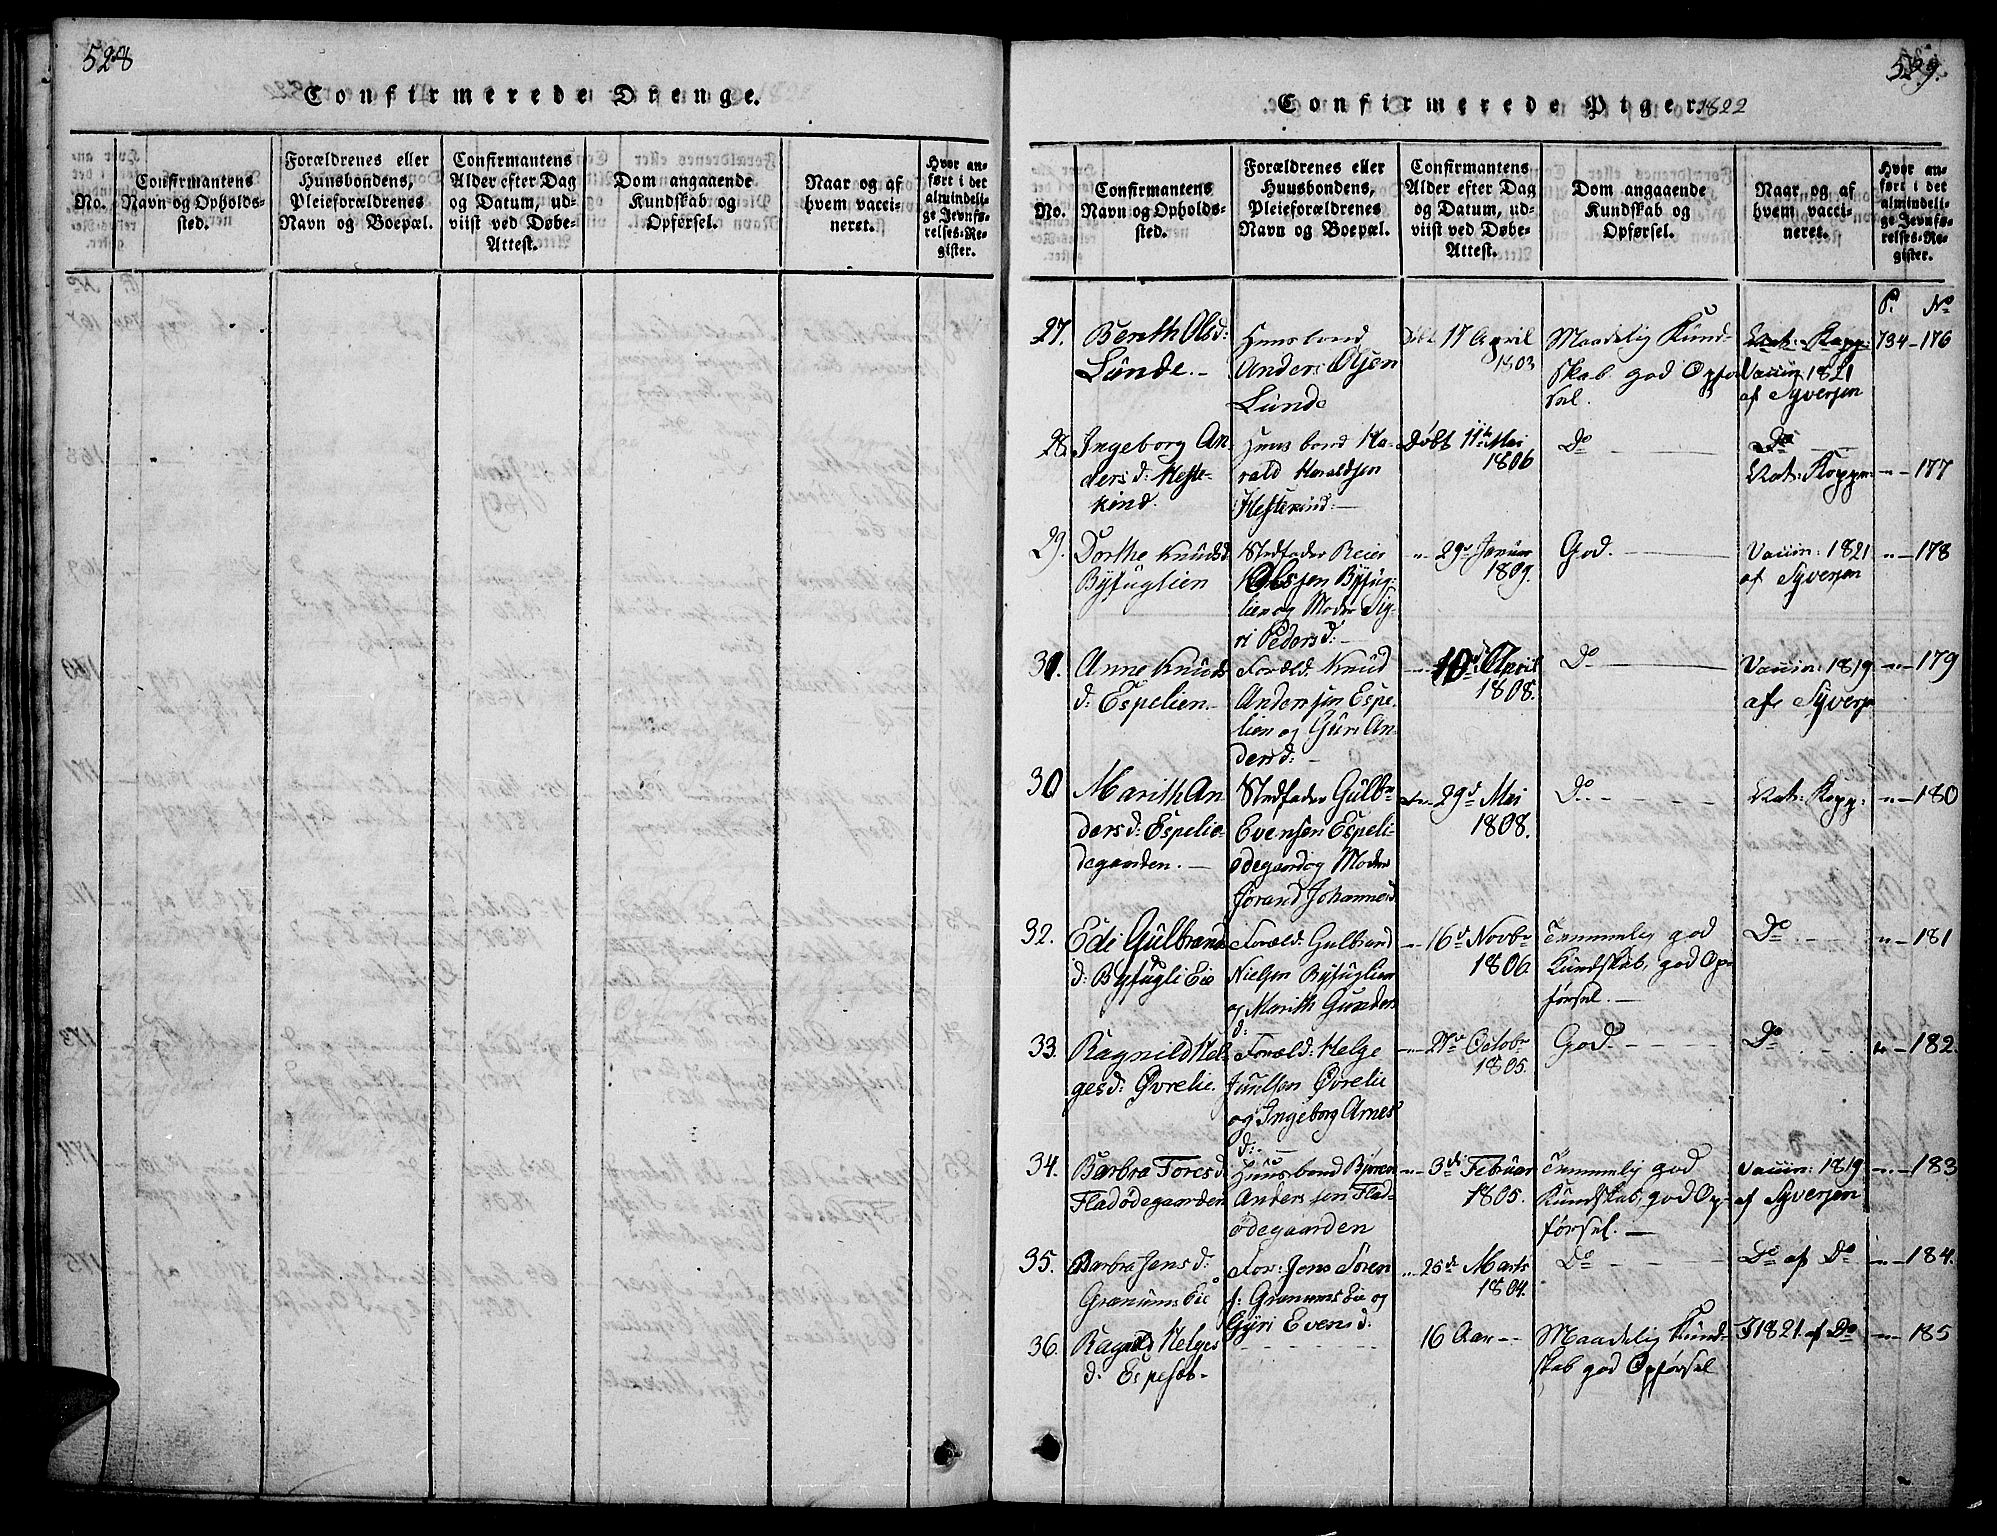 528
Confirmerede Drenge.
No.
Confirmantens
Navn og Opholds-
sted.
Forældrenes eller
Huusbondens,
Pleieforældrenes
Navn og Boepæl.
Confirmantens
Alder efter Dag
og Datum, ud-
viist ved Døbe-
Attest.
Dom angaaende
Kundskab og
Opførsel.
Naar og af
hvem vacci-
neret.
Hvor an-
ført i det
almindeli-
ge Jevnfø-
relses-Re-
gister.
529.
Confirmerede Piger 1822
No.
Confirmantens
Navn og Opholds-
sted.
Forældrenes eller
Huusbondens,
Pleieforældrenes
Navn og Boepæl.
Confirmantens
Alder efter Dag
og Datum, ud-
viist ved Døbe-
Attest.
Dom angaaende
Kundskab og
Opførsel.
Naar og af
hvem vacci-
neret.
Hvor an-
ført i det
almindeli-
ge Jevnfø-
relses-Re-
gister.
P. No
27. Benth Olsd:
Lunde.-
Huusbond
Anders Olsen
Lunde
Døbt 17 April
1803
Maadelig Kund-
skab god Opfør
sel.
Nat: Kopp:
Vaccin: 1821
af Syversen
734-176
28. Ingeborg An-
dersd: Heste-
kind.
Huusbond Ha-
rald Haraldsen
Hestekind:-
Døbt 11te Mai
1806
Do
Do
Nat: Kopper
"-177
29. Dorthe Knudsd
Byfuglien
Stedfader Reier
Olssen Byfug-
lien og Moder Sig-
ri Pedersd:-
" 29de Januar
1809.
God.
Vaccin: 1821
af Syversen
"-178
31. Anne Knuds
d: Espelien.-
Foræld: Knud
Andersen Espe-
lien og Guri An-
dersd:-
10de April
1808.
Do
Vaccin: 1819
af Syversen
"-179
30 Marith An
dersd: Espelie-
degaarden.-
Stedfader Gulbr
Evensen Espeli-
ødegaard og Moder
Jørand Johannesd
"-29de Mai
1808.
Do
Nat: Kopp:
"-180
32. Edi Gulbrands
d: Byfugli Eie
Foræld: Gulbrand
Nielsen Byfuglien
og Marith Gunders
d:
-16de Novbr
1806.
Temmelig god
Kundskab, god Op-
førsel.-
Do
"-181
33. Ragnild Hel-
gesd: Øvrelie.
Foræld: Helge
Juulsen Øvrelie
og Ingeborg Arnes
d:-
-27de Octobr
1805.
God
Do
"-182.
34. Barbra Toresd:
Fladødegaarden
Huusbond Bjøren
Andersen Flad-
ødegaarden
"-3de Februar
1805.
Temmelig god
Kundskab, god Op-
førsel.-
Vaccin: 1819
af Syversen
"-183
35. Barbra Jensd:
Grænums Eie
For: Jens Søren
s: Grænums Eie og
Gyri Evensd:
"-25de Marts
1804.
Do
Do af Do
"-184.
36. Ragnild Helges
d: Espeset-
16 Aar--
Maadelig Kund-
skab god Opførsel
I 1821. af Do
"-185